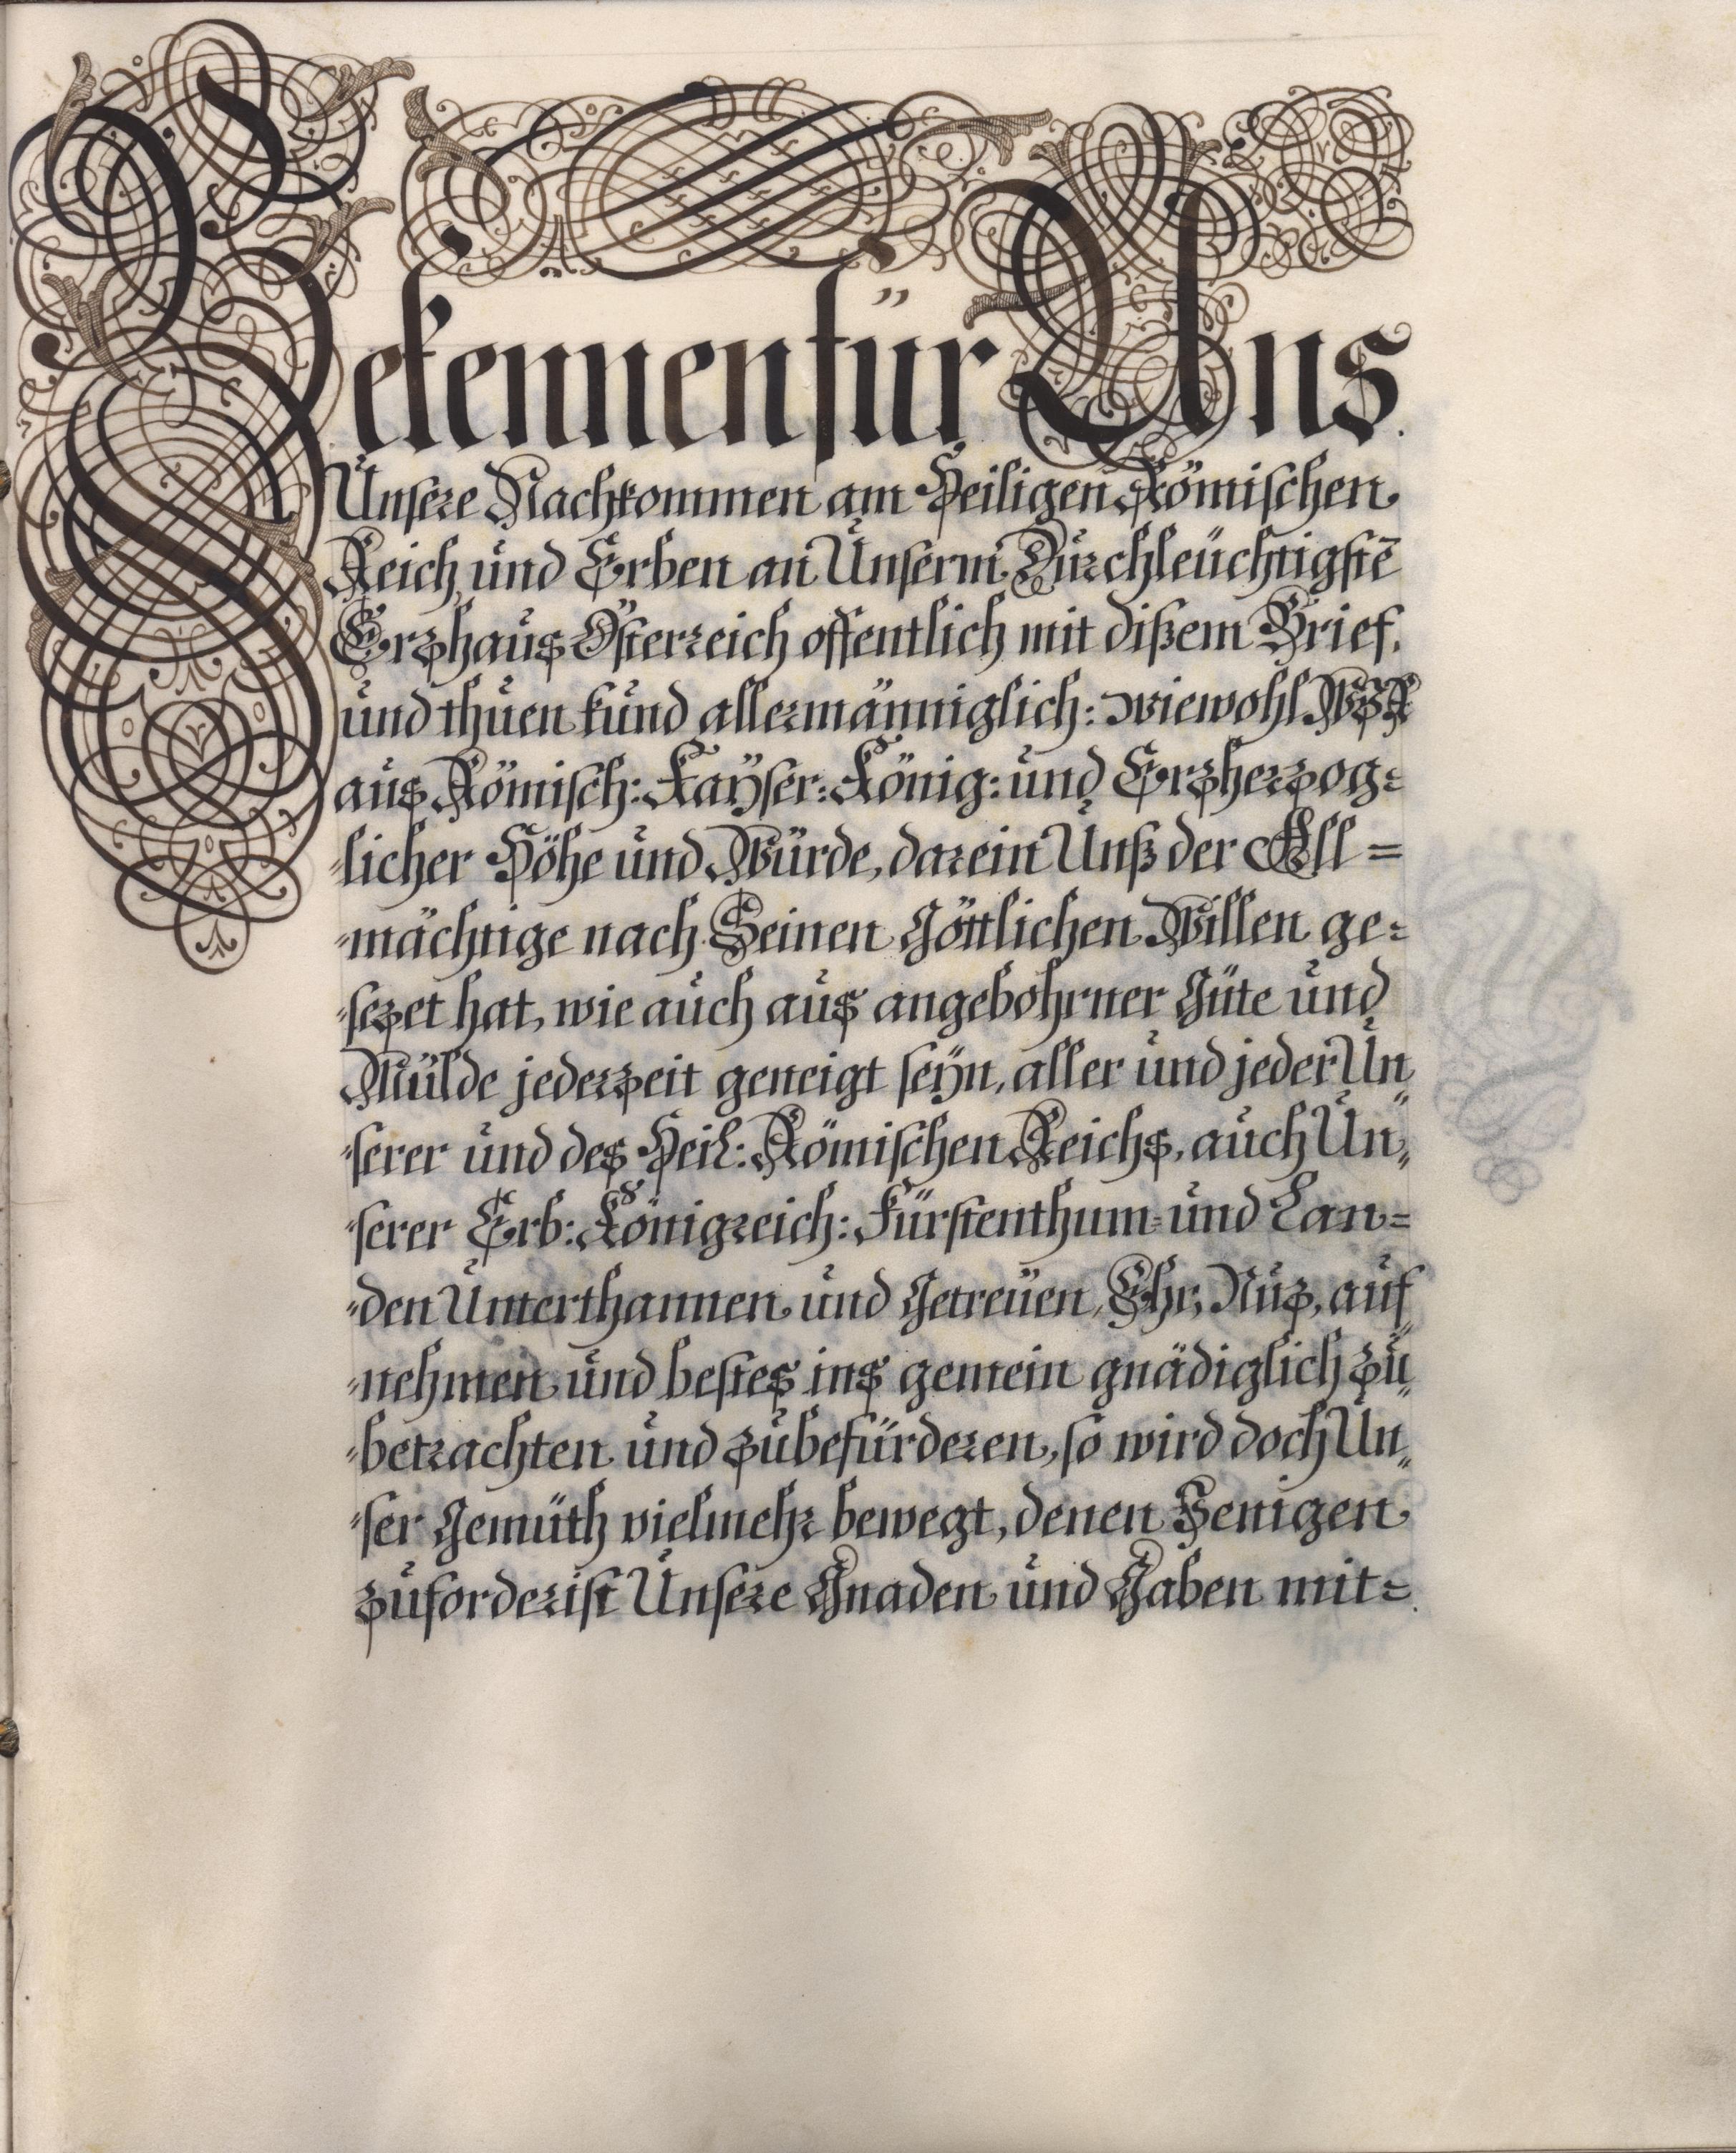 Bekennen für Uns
Unsere Nachkommen am Heiligen Römischen
Reich, und Erben an Unserm Durchleüchtigstē
Erzhaus Österreich offentlich mit dißem Brief,
und thuen kund allermänniglich: wiewohl WIR
aus Römisch: Kaÿser: König: und Erzherzog=
„licher Höhe und Würde, darein Unß der All=
„mächtige nach Seinen Göttlichen Willen ge=
„sezet hat, wie auch aus angebohrner Güte und
Mülde jederzeit geneigt seÿn, aller und jeder Un„
„serer und des Heil: Römischen Reichs, auch Un„
„serer Erb: Königreich: Fürstenthum= und Lan=
„den Unterthannen und Getreüen, Ehr, Nuz, auf„
„nehmen und bestes ins gemein gnädiglich zu„
„betrachten und zubefürderen, so wird doch Un„
„ser Gemüth vielmehr bewegt, denen Jenigen
zuforderist Unsere Gnaden und Gaben mit=